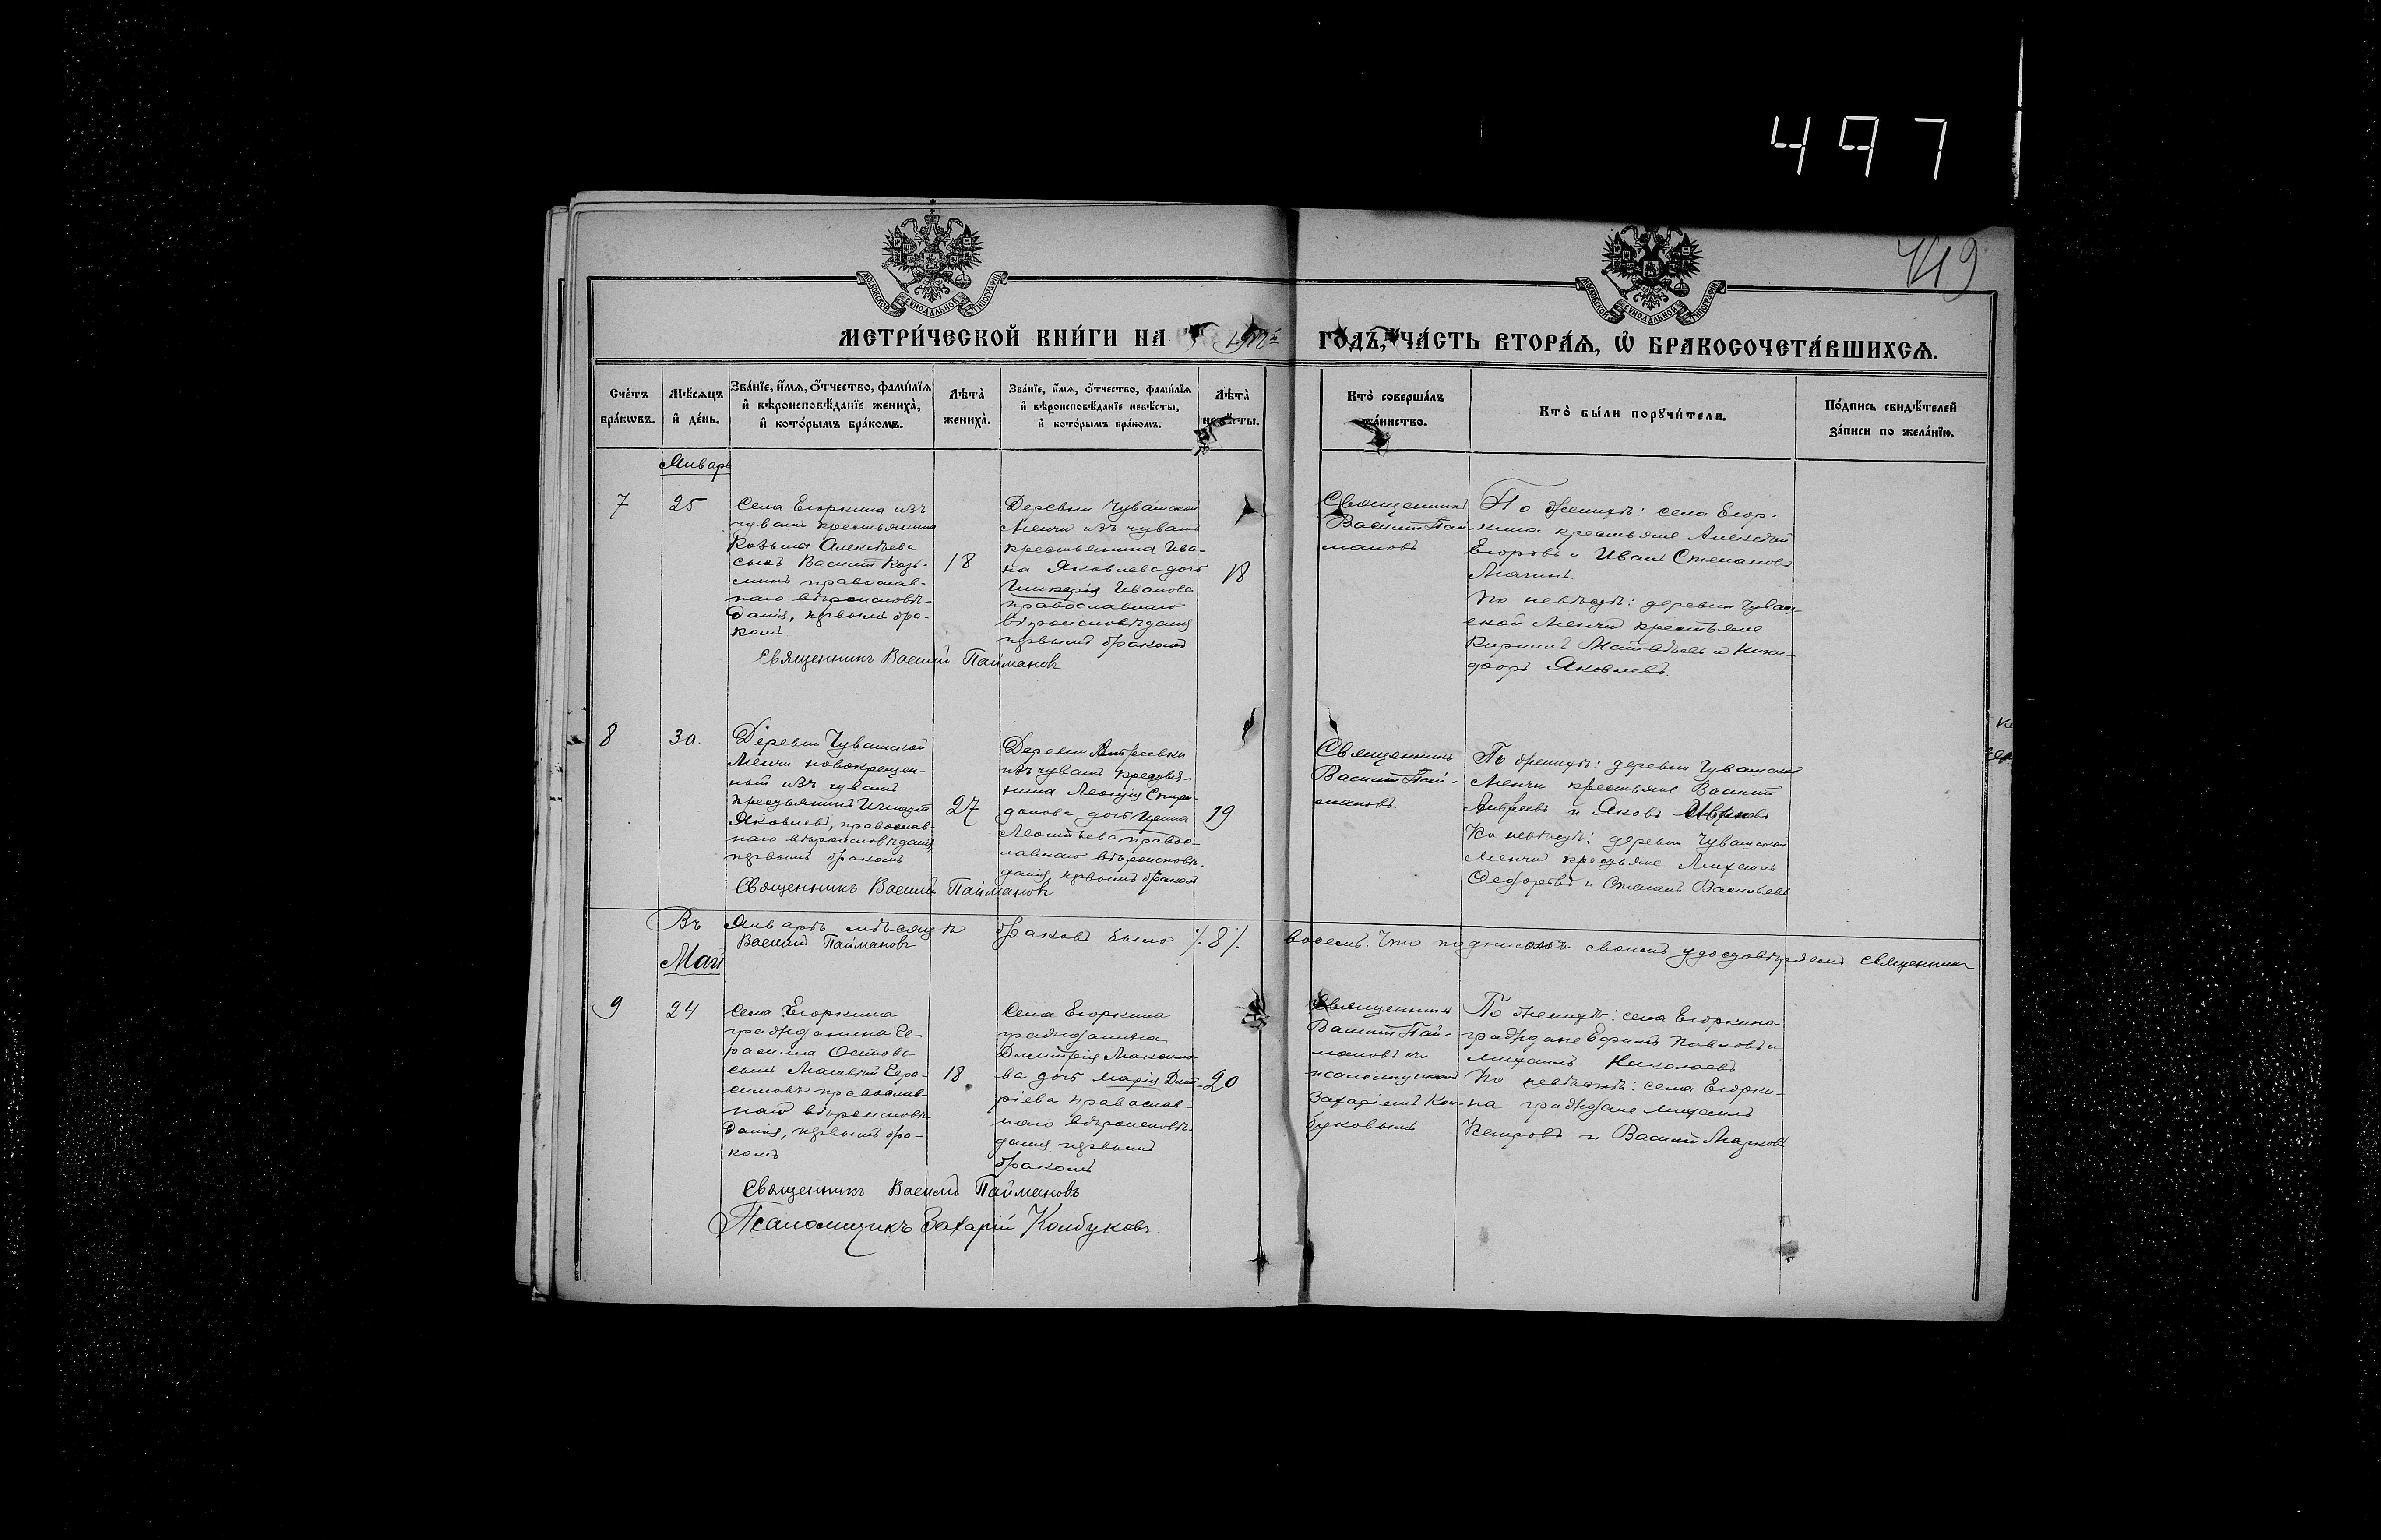 497
419
МОСКОВСКОЙ СѴНОДАЛЬНОЙ ТИПОГРАФІИ
МОСКОВСКОЙ СѴНОДАЛЬНОЙ ТИПОГРАФІИ
МЕТРИ́ЧЕСКОЙ КНИ́ГИ НА
ГО́ДЪ, ЧА́СТЬ ВТОРА́Ѧ, Ѡ҆ БРАКОСОЧЕТА́ВШИХСѦ.
Сче́тъ бра́кѡвъ.
Мѣ́сѧцъ и҆ де́нь.
Зва́нїе, и҆́мѧ, ѻ҆́тчество, фами́лїѧ и҆ вѣроисповѣ́данїе жениха̀, и҆ кото́рымъ бра́комъ.
Лѣ́та̀ жениха̀.
Зва́нїе, и҆́мѧ, ѻ҆́тчество, фами́лїѧ и҆ вѣроисповѣ́данїе невѣ́сты, и҆ кото́рымъ бра́комъ.
Лѣ́та̀ невѣ́сты.
Кто̀ соверша́лъ та́инство.
Кто̀ бы́ли порꙋчи́тели.
По́дпись свидѣ́телей за́писи по жела́нїю.
Январь
7
25
Села Егоркина изъ
чувашъ крестьянина
Козьмы Алексѣева
сынъ Василій Козь-
минъ православ-
наго вѣроисповѣ-
данія, первымъ бра-
комъ
18
Деревни Чувашской
Менчи изъ чувашъ
крестьянина Ива-
на Яковлева дочь
Гликерія Иванова
православнаго
вѣроисповѣданія
первымъ бракомъ
18
Священникъ
Василій Пай-
мановъ
По женихѣ: села Егор-
кина крестьяне Алексѣй
Егоровъ и Иванъ Степановъ
По невѣстѣ: деревни Чуваш-
ской Менчи крестьяне
Кириллъ Матвѣевъ и Ники-
форъ Яковлевъ.
Священникъ Василій Паймановъ
8
30.
Деревни Чувашской
Менчи новокрещен-
ный изъ чувашъ
крестьянинъ Игнатій
Яковлевъ, православ-
наго вѣроисповѣданія,
первымъ бракомъ
27
Деревни
изъ чувашъ крестья-
нина Леонтія Спири-
донова дочь
Леонтьева правос-
лавнаго вѣроисповѣ-
данія, первымъ бракомъ
19
Священникъ
Василій Пай-
мановъ.
По женихѣ: деревни Чувашской
Менчи крестьяне Василій
Андреевъ и Яковъ Ивановъ
По невѣстѣ: деревни Чувашской
Менчи крестьяне Михаилъ
Ѳедоровъ и Степанъ Васильевъ
Священникъ Василій Паймановъ
Въ Январѣ мѣсяцѣ браковъ было ⁒8⁒ восемь. Что подписомъ своимъ удостовѣряемъ священникъ
Василій Паймановъ
Май
9
24
Села Егоркина
гражданина Ге-
расима
сынъ Матвѣй Гера-
симовъ православ-
наго вѣроисповѣ-
данія, первымъ бра-
комъ
18
Села Егоркина
гражданина
Димитрія Максимо-
ва дочь Марія Димит-
ріева православ-
наго вѣроисповѣ-
данія первымъ
бракомъ
20
Священникъ
Василій Пай-
мановъ съ
псаломщикомъ
Захаріемъ Кол-
буковымъ
По женихѣ: села Егоркина
граждане Ефимъ Павловъ и
Михаилъ Николаевъ
По невѣстѣ: села Егорки-
на граждане Михаилъ
Петровъ и Василій Марковъ
Священникъ Василій Паймановъ
Псаломщикъ Захарій Колбуковъ.